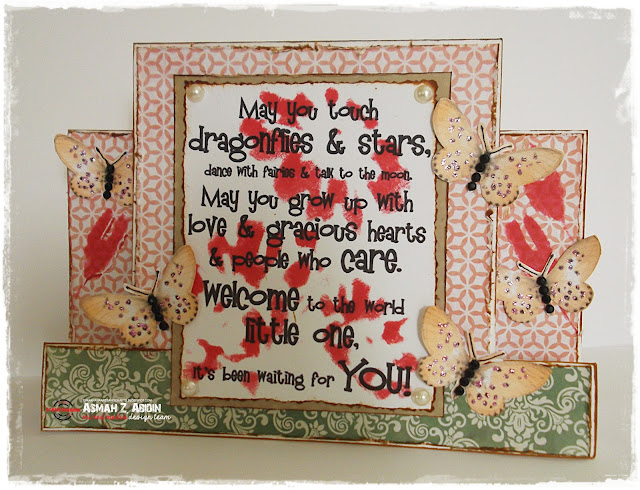 May you touch
dragonflies & stars,
dance with fairies & talk to the moon.
May you grow up with
love & gracious hearts
& people who care.
Welcome to the world
little one,
it's been waiting for YOU!
Asmah Z. Abidin
design team